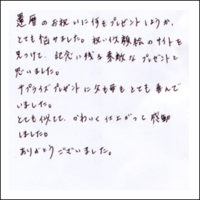 還暦のお祝いに何をプレゼントしようか、
とても悩みました。祝い似顔絵のサイトを
見つけて、記念に残る素敵なプレゼントと
思いました。
サプライズプレゼントに父も母もとても喜んで
いました。
とても似てて、かわいく仕上がって感動
しました。
ありがとうございました。